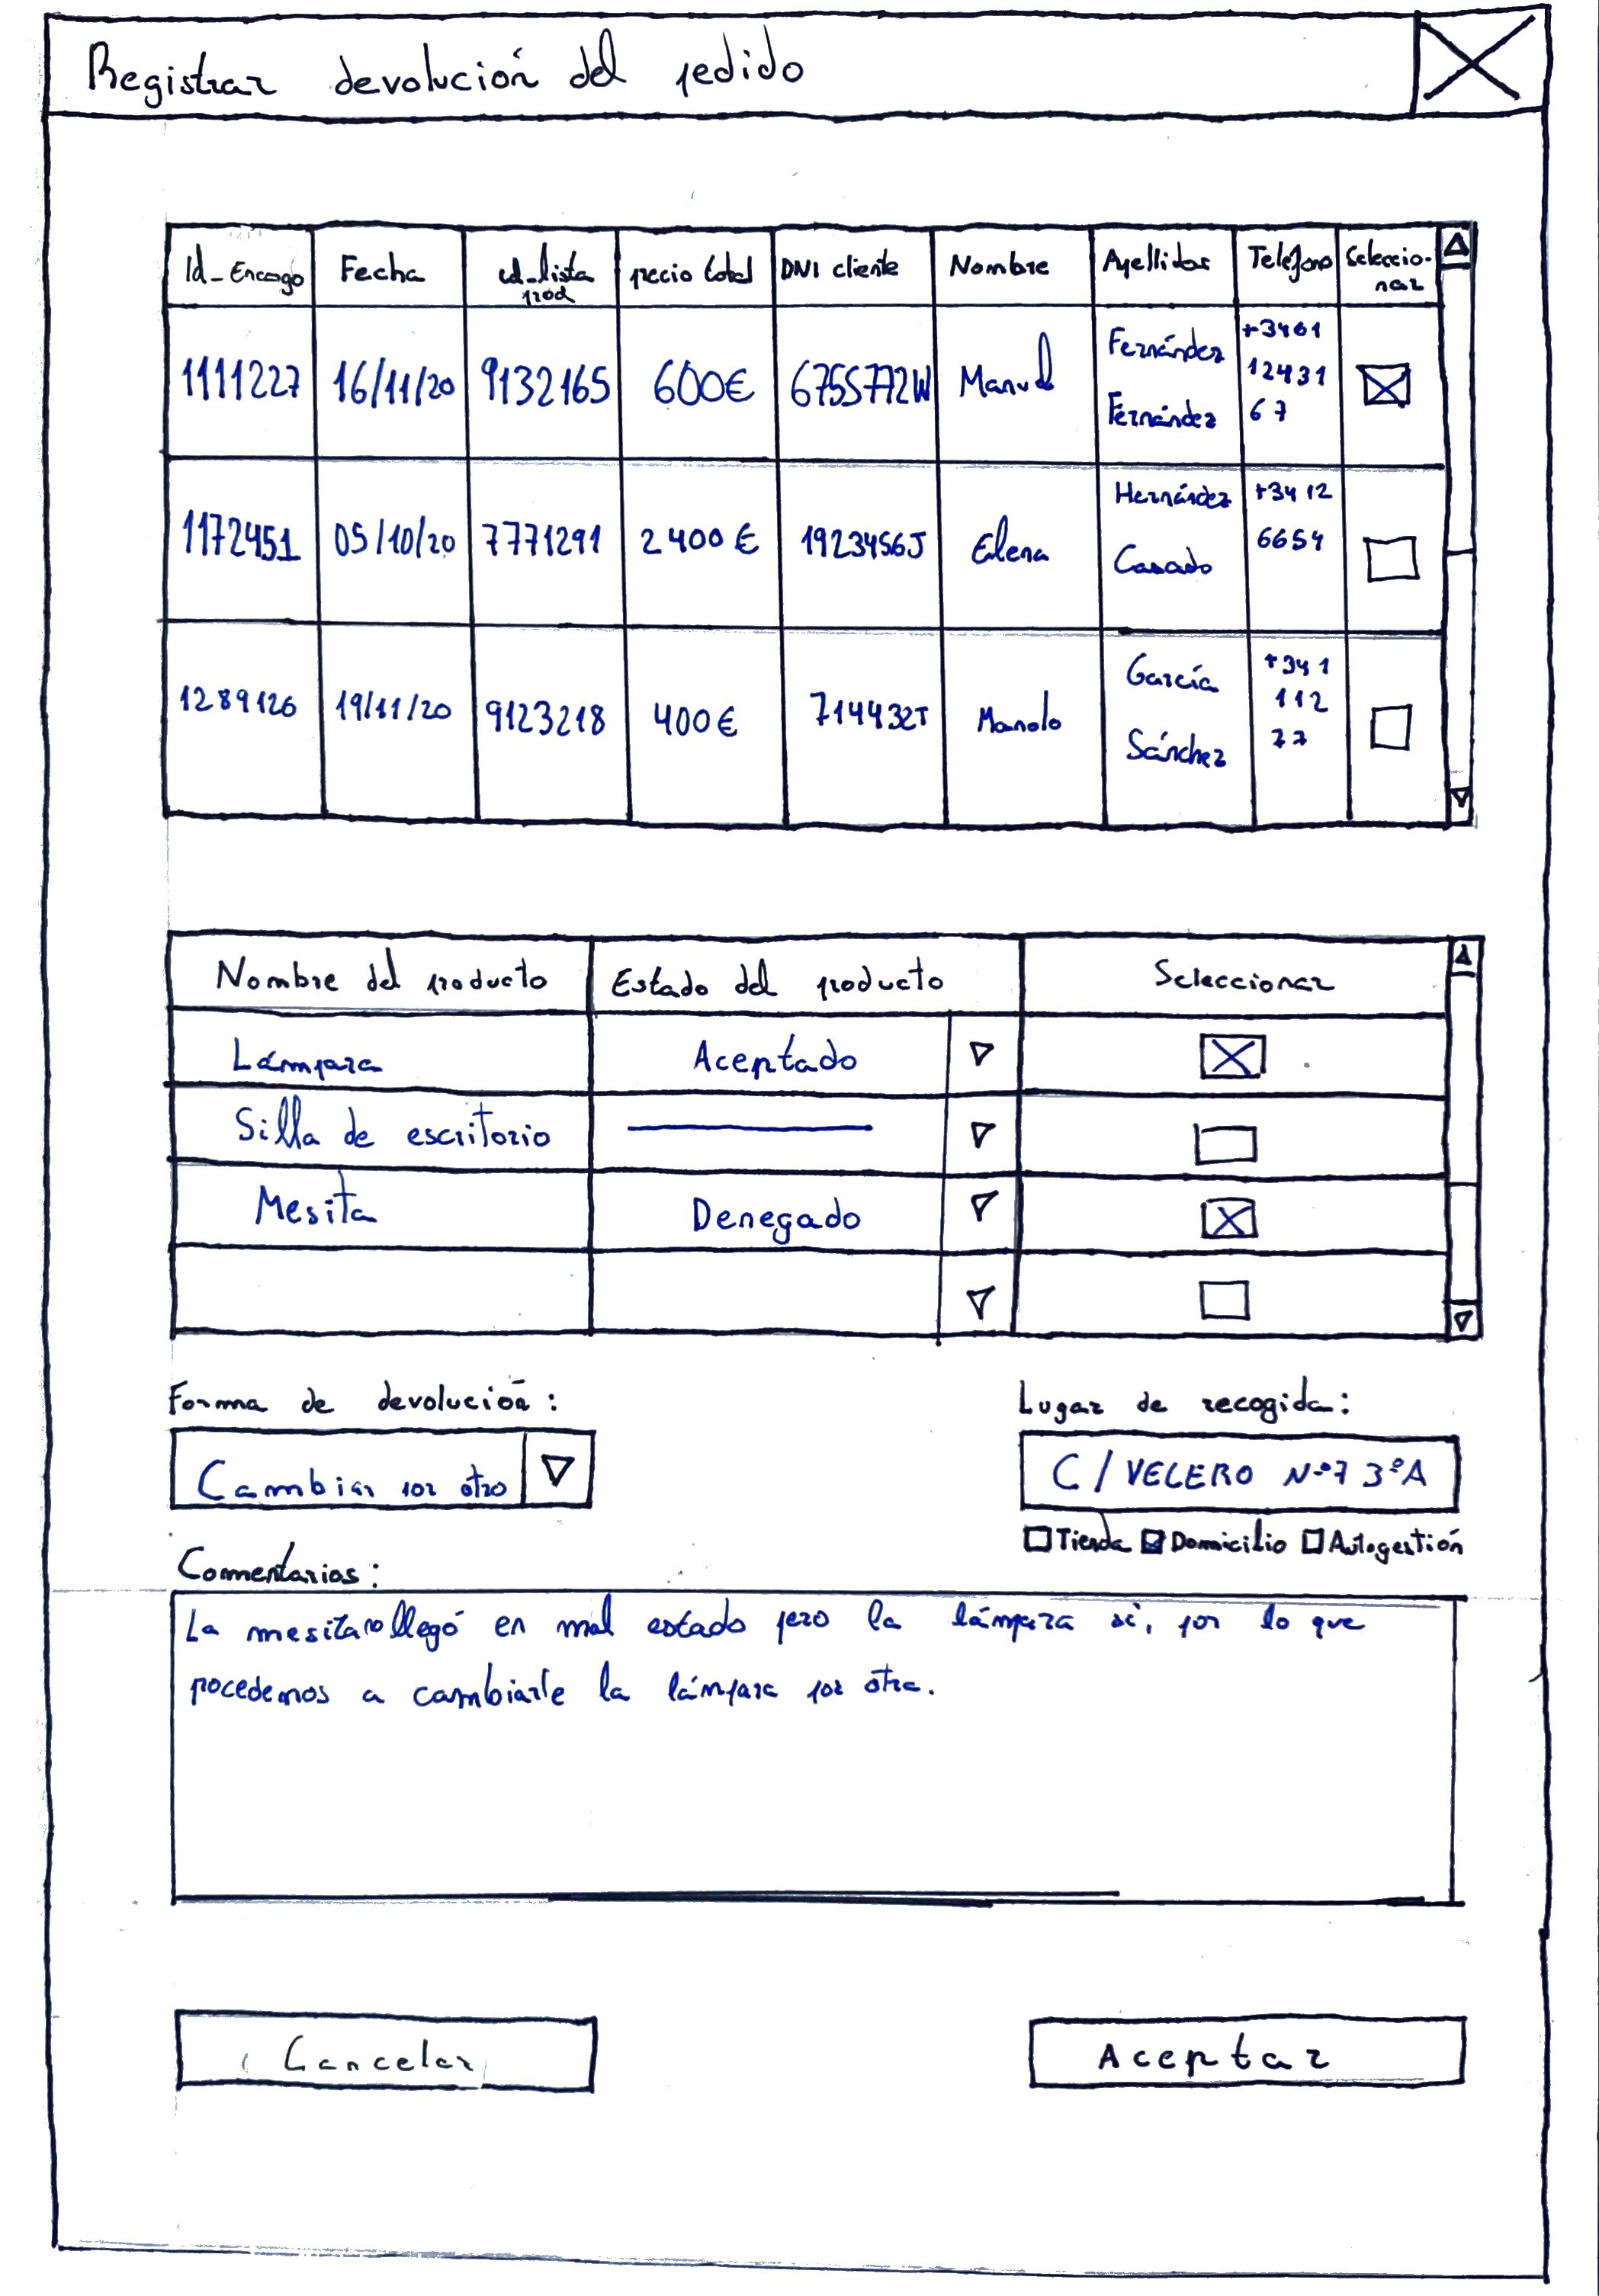 Registrar devolución del pedido
Id_Encargo Fecha id_lista prod precio total DNI cliente Nombre Apellidos Teléfono Seleccio-nar
1111227 16/11/20 9132165 600€ 6755772W Manuel Fernández Fernández +3461 12431 67
1172451 05/10/20 7771291 2400€ 1923456J Elena Hernández Casado +3412 6654
1289126 19/11/20 9123218 400€ 714432T Manolo García Sánchez +341 112 77
Nombre del producto Estado del producto Seleccionar
Lámpara Aceptado
Silla de escritorio
Mesita Denegado
Forma de devolución: Lugar de recogida:
Cambiar por otro C/VELERO Nº7 3ºA
Tienda Domicilio Autogestión
Comentarios:
La mesita no llegó en mal estado pero la lámpara sí, por lo que
pocedemos a cambiarle la lámpara por otra.
Cancelar Aceptar